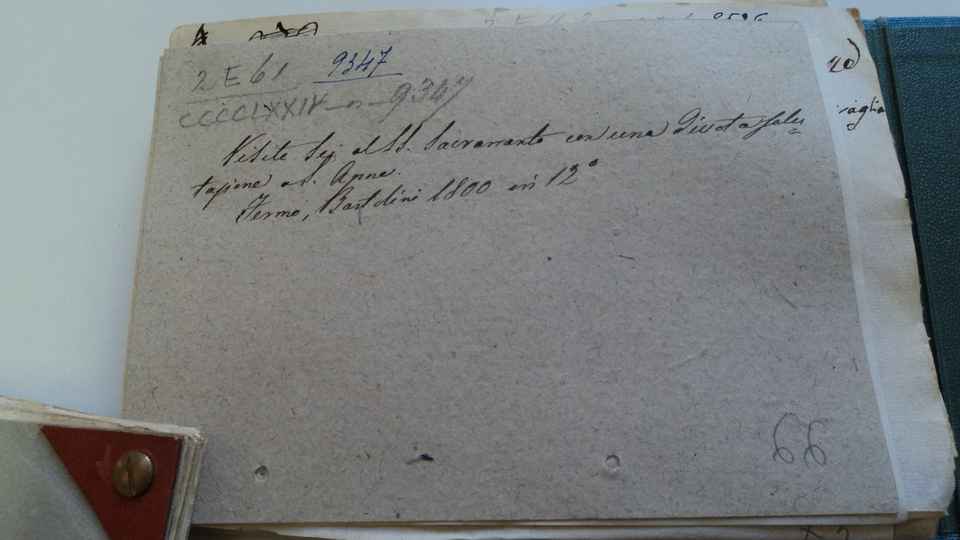 2 E 61 9347
CCCCLXXIX 9347
Visite Sej al SS. Sacramento con una Divota Salu=
tazione a S. Anna.
Fermo, Bartolini 1800 in 12°
66
20)